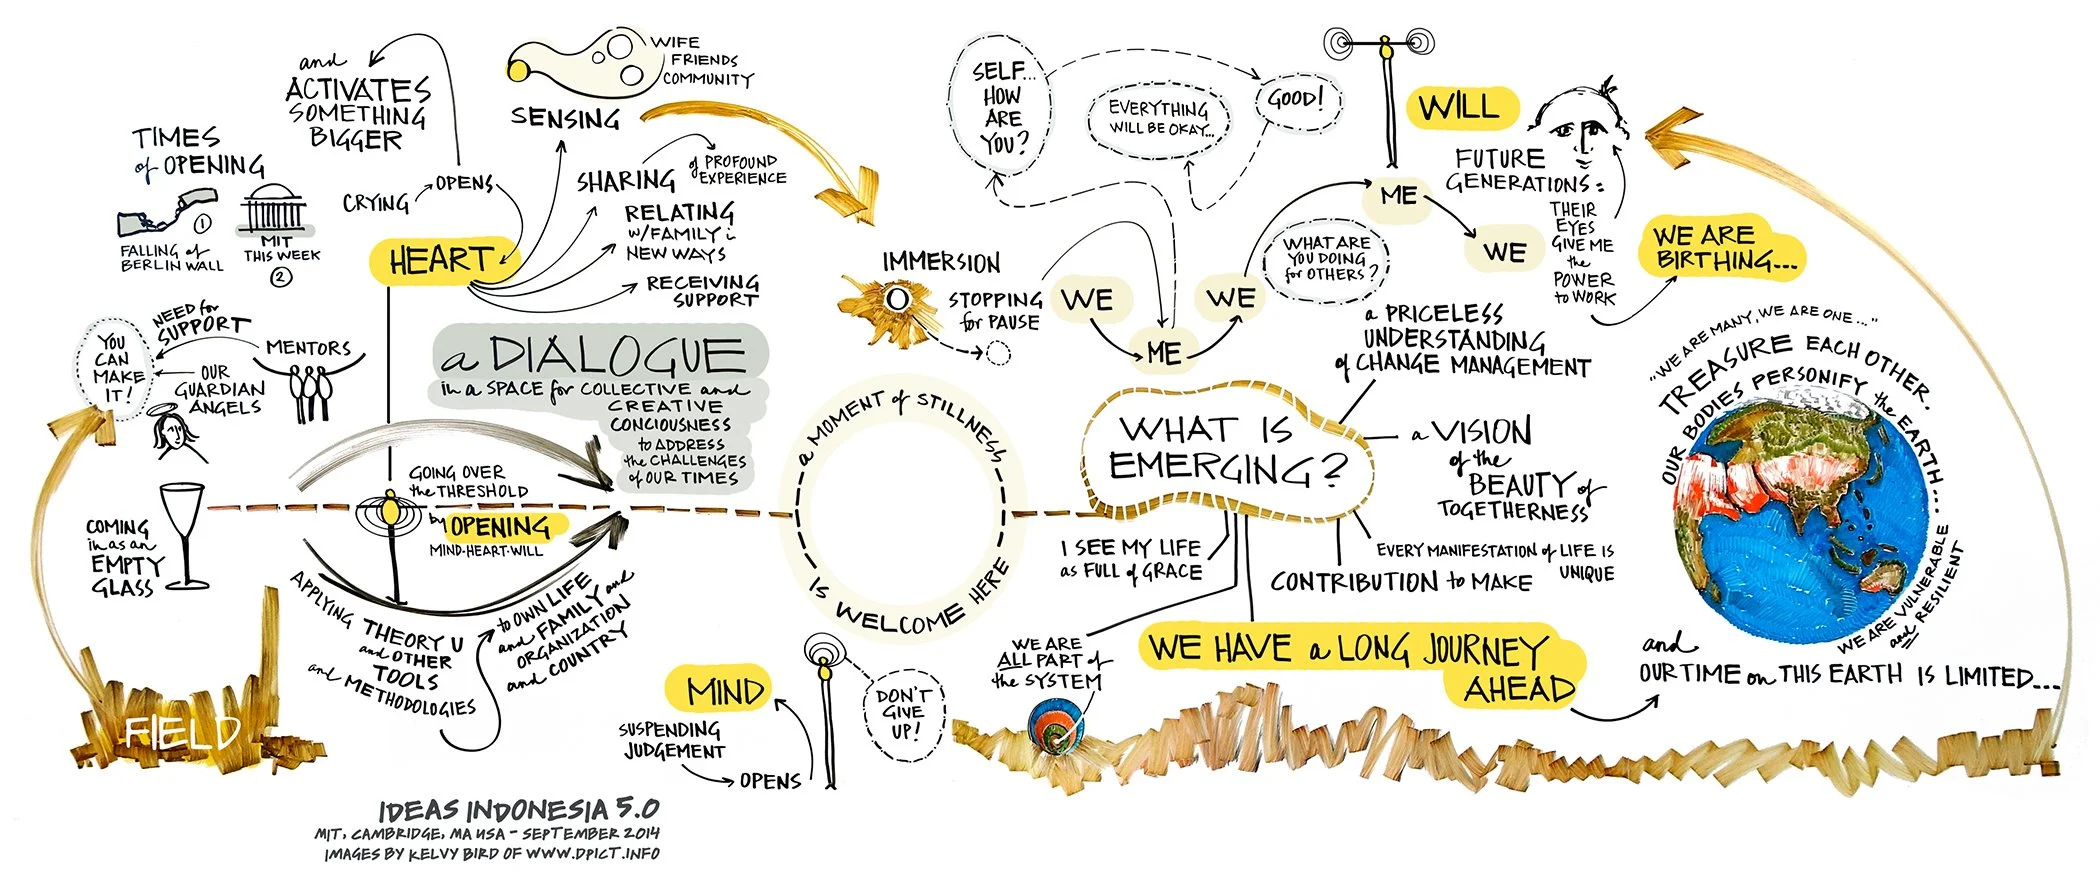 and
ACTIVATES
SOMETHING
BIGGER
TIMES
of OPENING
1
FALLING of
BERLIN WALL
MIT
THIS WEEK
2
CRYING
OPENS
HEART
WIFE
FRIENDS
COMMUNITY
SENSING
SHARING
of PROFOUND
EXPERIENCE
RELATING
W/FAMILY i
NEW WAYS
RECEIVING
SUPPORT
YOU
CAN
MAKE
IT!
NEED for
SUPPORT
MENTORS
OUR
GUARDIAN
ANGELS
COMING
in as an
EMPTY
GLASS
FIELD
a DIALOGUE
in a SPACE for COLLECTIVE and
CREATIVE
CONCIOUSNESS
to ADDRESS
the CHALLENGES
of OUR TIMES
GOING OVER
the THRESHOLD
by OPENING
MIND·HEART·WILL
APPLYING THEORY U
and OTHER
TOOLS
and METHODOLOGIES
to OWN LIFE
and FAMILY and
ORGANIZATION
and COUNTRY
a MOMENT of STILLNESS
IS WELCOME HERE
MIND
SUSPENDING
JUDGEMENT
OPENS
DON'T
GIVE
UP!
IMMERSION
STOPPING
for PAUSE
SELF...
HOW
ARE
YOU?
EVERYTHING
WILL BE OKAY...
GOOD!
WE
ME
WE
WHAT ARE
YOU DOING
for OTHERS?
ME
WE
WILL
FUTURE
GENERATIONS:
THEIR
EYES
GIVE ME
the
POWER
to WORK
WE ARE
BIRTHING...
WHAT IS
EMERGING?
a PRICELESS
UNDERSTANDING
of CHANGE MANAGEMENT
a VISION
of the
BEAUTY of
TOGETHERNESS
EVERY MANIFESTATION of LIFE IS
UNIQUE
CONTRIBUTION to MAKE
I SEE MY LIFE
as FULL of GRACE
WE ARE
ALL PART of
the SYSTEM
WE HAVE a LONG JOURNEY
AHEAD
"WE ARE MANY, WE ARE ONE..."
TREASURE EACH OTHER.
OUR BODIES PERSONIFY the EARTH...
WE ARE VULNERABLE
and RESILIENT
and
OUR TIME on THIS EARTH IS LIMITED...
IDEAS INDONESIA 5.0
MIT, CAMBRIDGE, MA USA - SEPTEMBER 2014
IMAGES BY KELVY BIRD OF WWW.DPICT.INFO